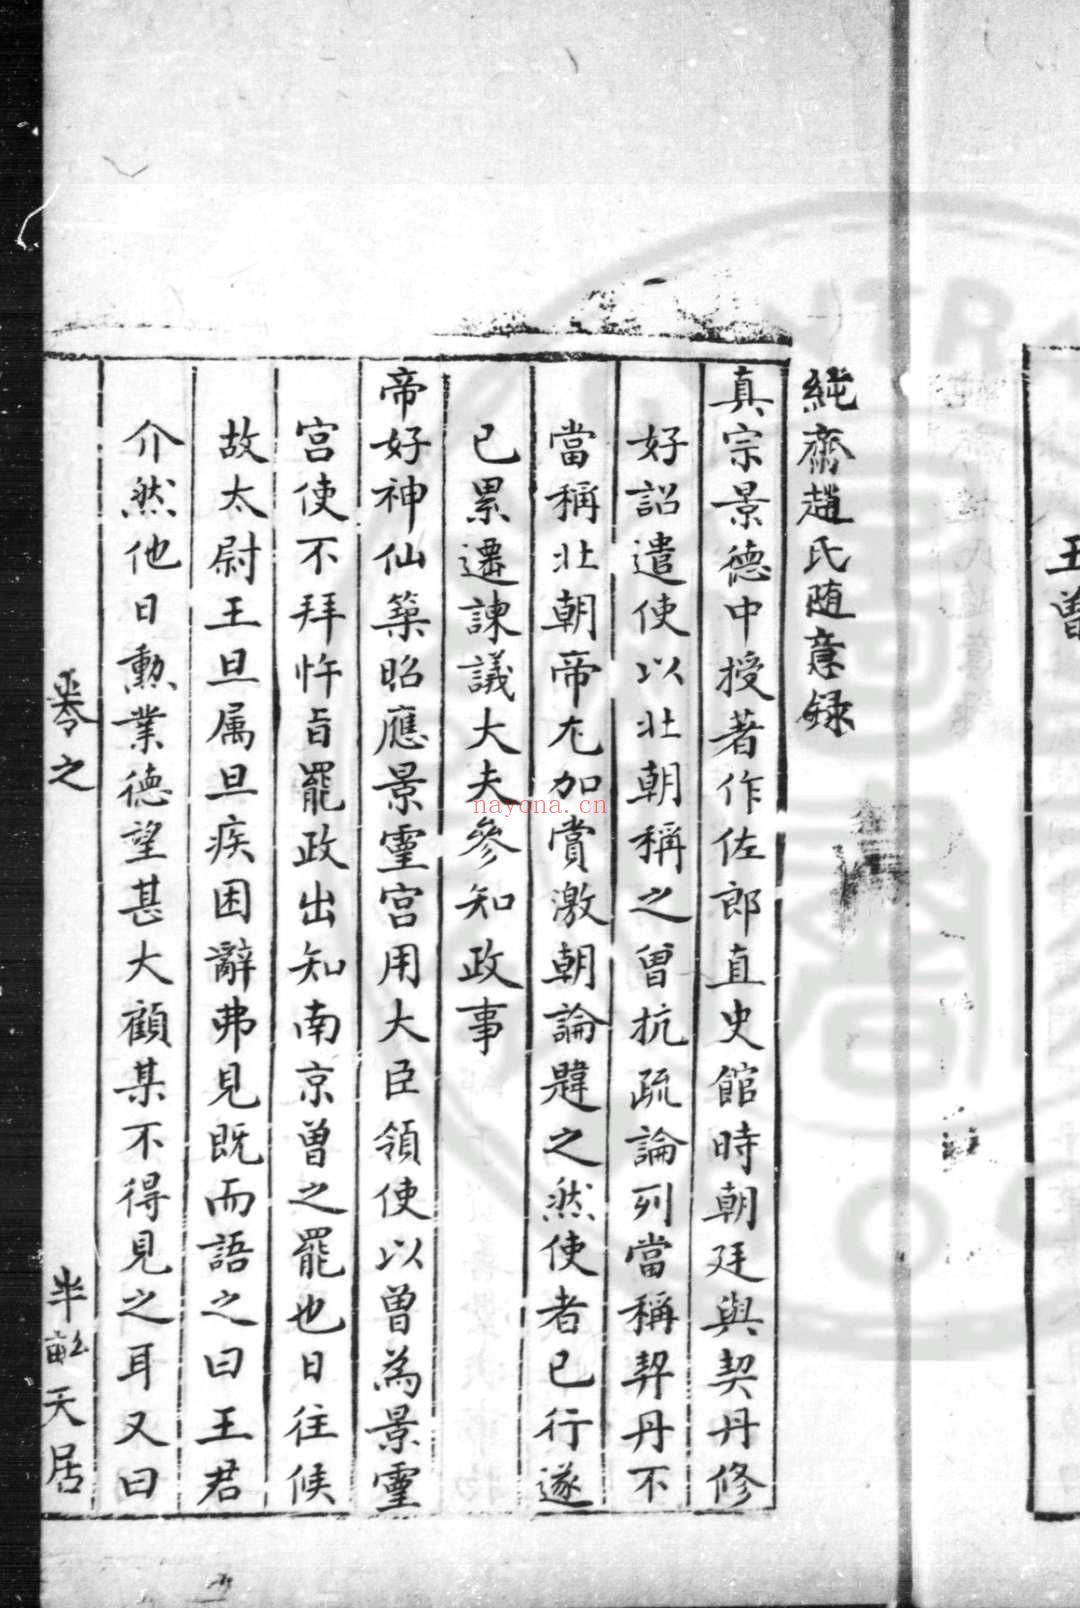 王曾
純齋趙氏随意録
真宗景德中授著作佐郎直史館時朝廷與契丹修
好詔遣使以北朝稱之曽抗疏論列當稱契丹不
當稱北朝帝尤加賞激朝論韙之然使者已行遂
已累遷諫議大夫參知政事
帝好神仙築昭應景靈宮用大臣領使以曽為景靈
宮使不拜忤旨罷政出知南京曽之罷也日往候
故太尉王旦属旦疾困辭弗見既而語之曰王君
介然他日勲業德望甚大顧某不得見之耳又曰
卷之
半畝天居
nayona.cn